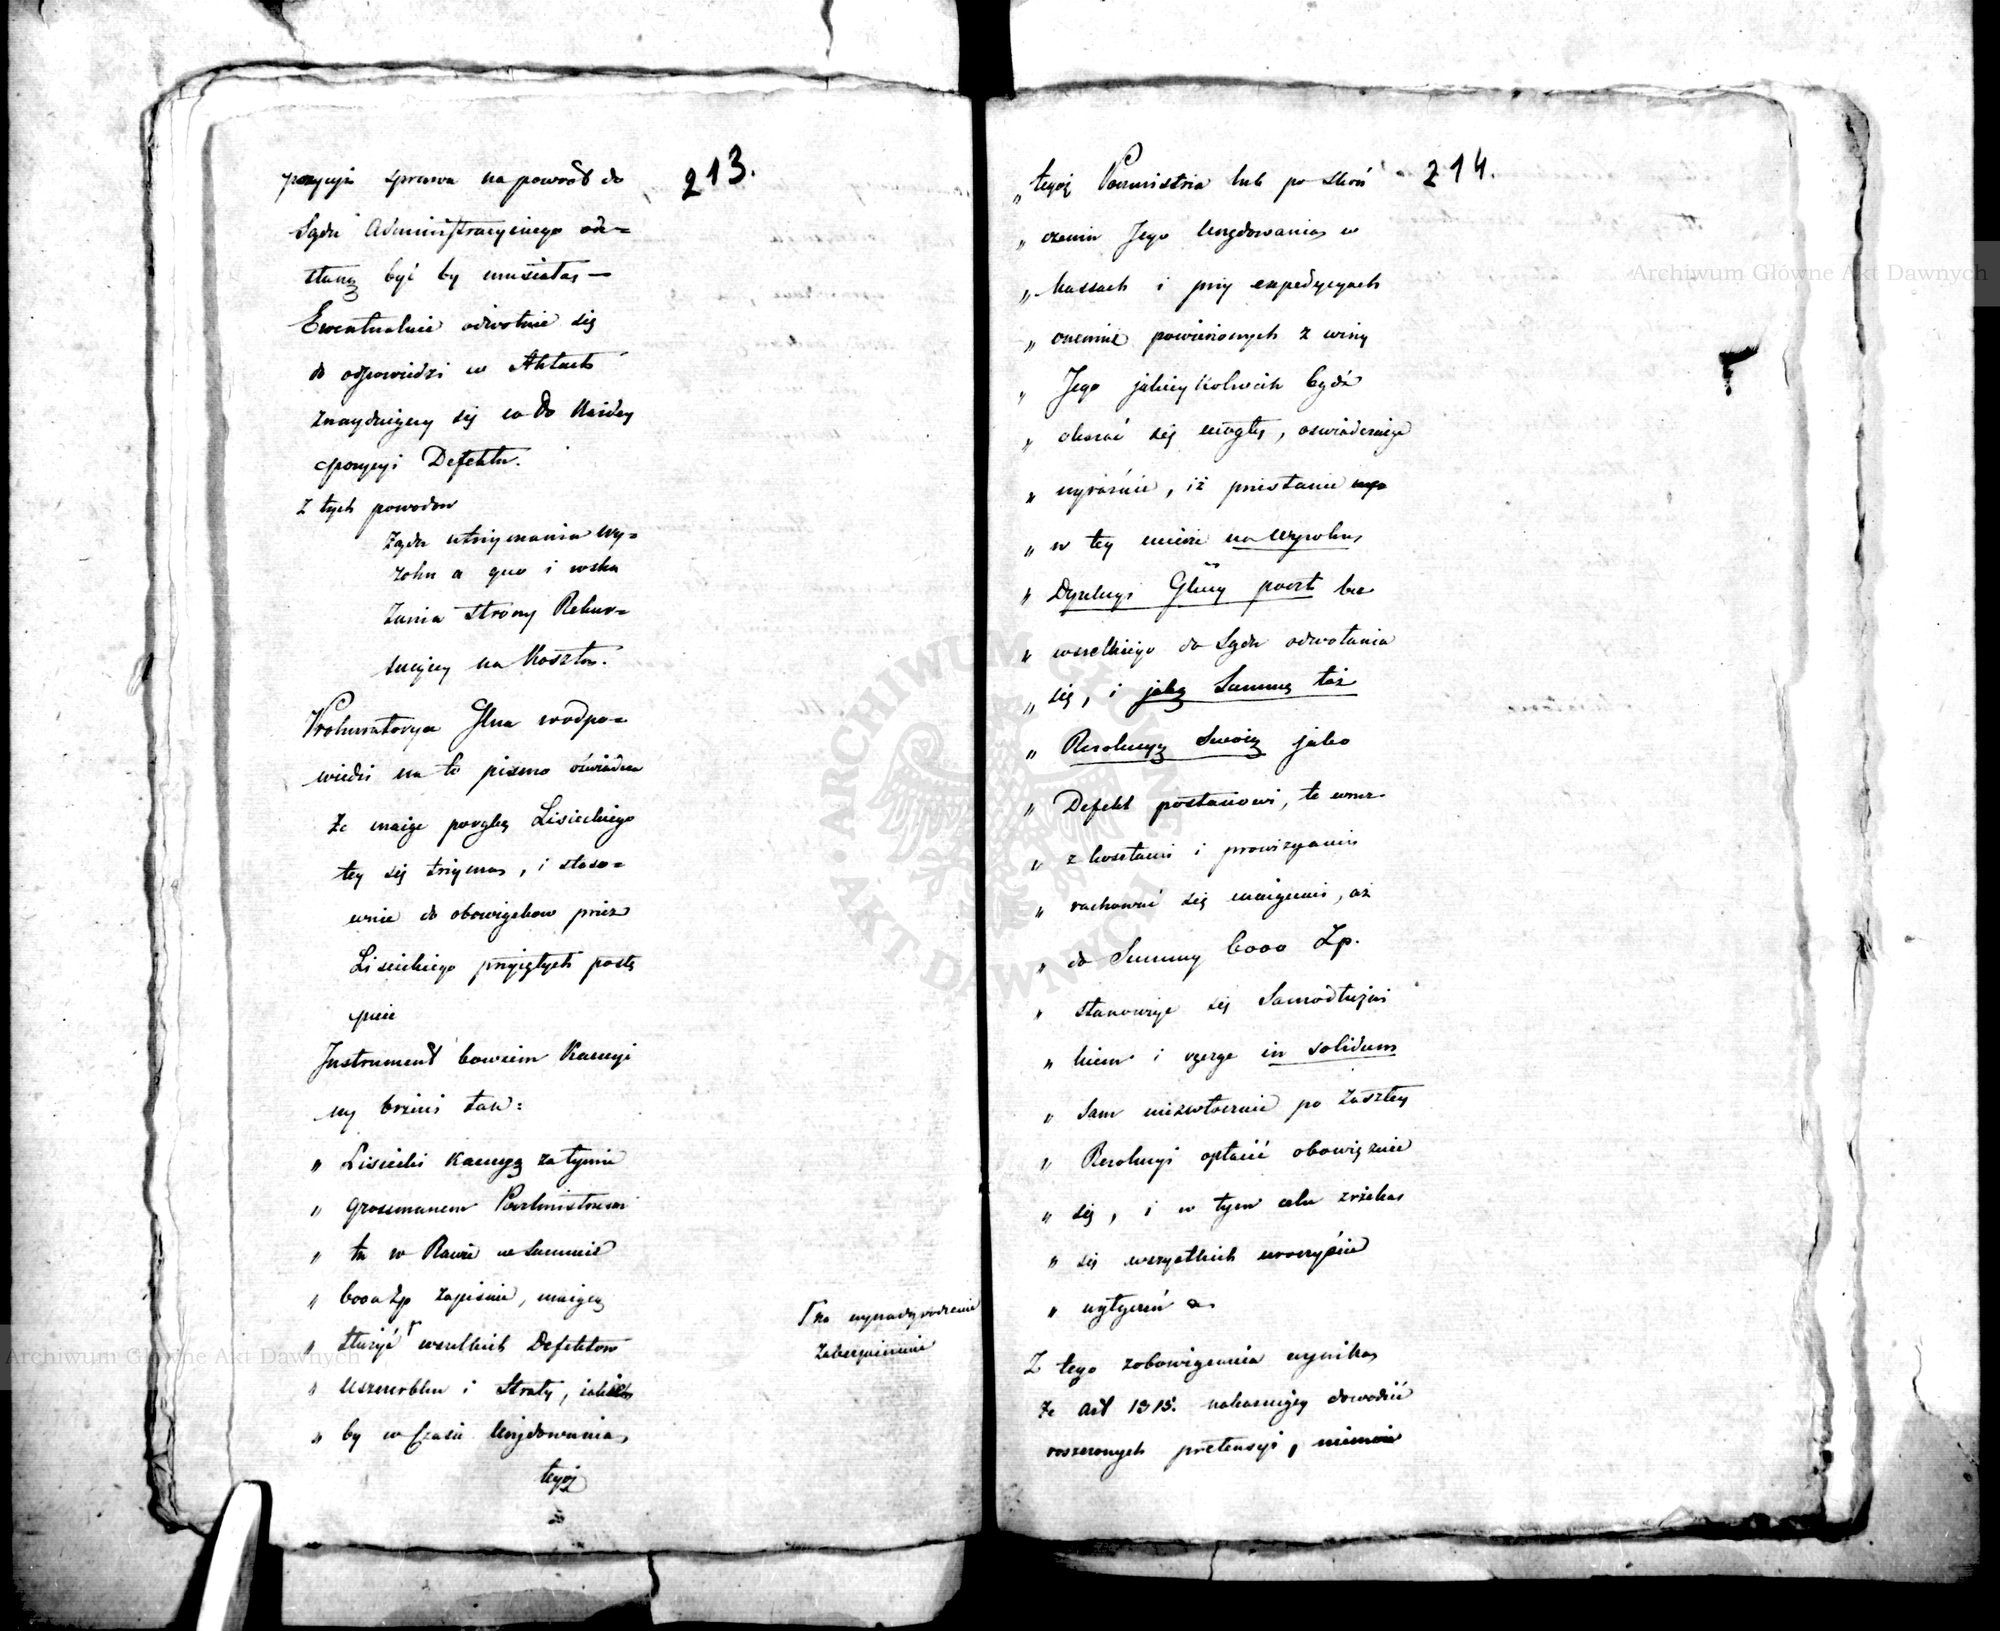 213.
pozycyi sprawa na powrot do
Sądu Administracyinego ode=
słaną być by musiała —
Ewentualnie odwołuie się
do odpowiedzi w Aktach
znayduiącey się co do Każdey
pozycyi Defektu.
Z tych powodow
Żąda utrzymania wy=
roku a quo i wska
zania strony Rekur=
suiącey na Koszta.
Prokuratorya Glna w odpo=
wiedzi na to pismo oświadcza
że maige porękę Lisieckiego
tey się trzyma, i stoso=
wnie do obowiązkow przez
Lisieckiego przyiętych postę
puie
Instrument bowiem Kaucyi
ny brzmi tak:
„ Lisiecki Kaucyą za tymże
„ Grossmanem Poczmistrzem
„ tu w Rawie w Summie
„ 6000 Zp zapisuie, maiącą
„ służyć ᴦ wszelkich Defektow
ᴦ na wynadgrodzenie
zabezpieczenie
„ Uszczerbku i Straty, iakie
„ by w Czasie Urzędowania
tegoż
214.
„ tegoż Poczmistrza lub po skoń
„ czeniu Jego Urzędowania w
„ kassach i przy expedycyach
„ onemuż powierzonych z winy
„ Jego jakieykolwiek bądź
„ okazać się mogły, oswiadczaiąc
„ wyraźnie, iż przestanie
„ w tey mierze na wyroku
„ Dyrekcyi Glney poczt bez
„ wszelkiego do Sądu odwołania
„ się, i jaką Summę taż
„ Rezolucyą Swoią jako
„ Defekt postanowi, te wraz
„ z kosztami i prowizyami
„ rachować się maiącemi, aż
„ do Summy 6000 Zp.
„ stanowiąc się Samodłużni
„ kiem i ręcząc in solidum
„ Sam niezwłocznie po zaszłey
„ Rezolucyi opłacić obowiązuie
„ się, i w tym celu zrzeka
„ się wszystkich uroczyście
„ wyłączeń
Z tego zobowiązania wynika
że art 1315. nakazuiący dowodzić
roszczonych pretensyi,